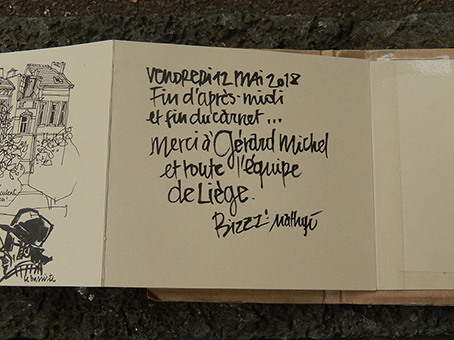 VENDREDI 12 MAI 2018
Fin d'après-midi
et fin du carnet...
Merci à Gérard Michel
et toute l'équipe
de Liège.
BIZZZ! Mathyï
le bassiste